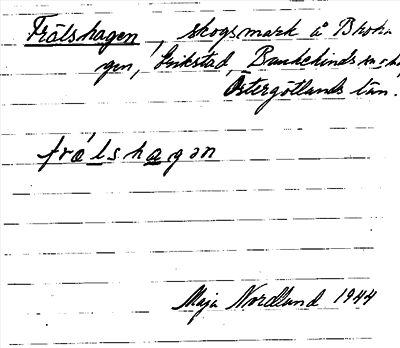 Trälshagen, skogsmark å Bkoha
gen, Svikstad, Bankekinds sn o hd,
Östergötlands län.
fra´lshagən
Maja Nordlund 1944